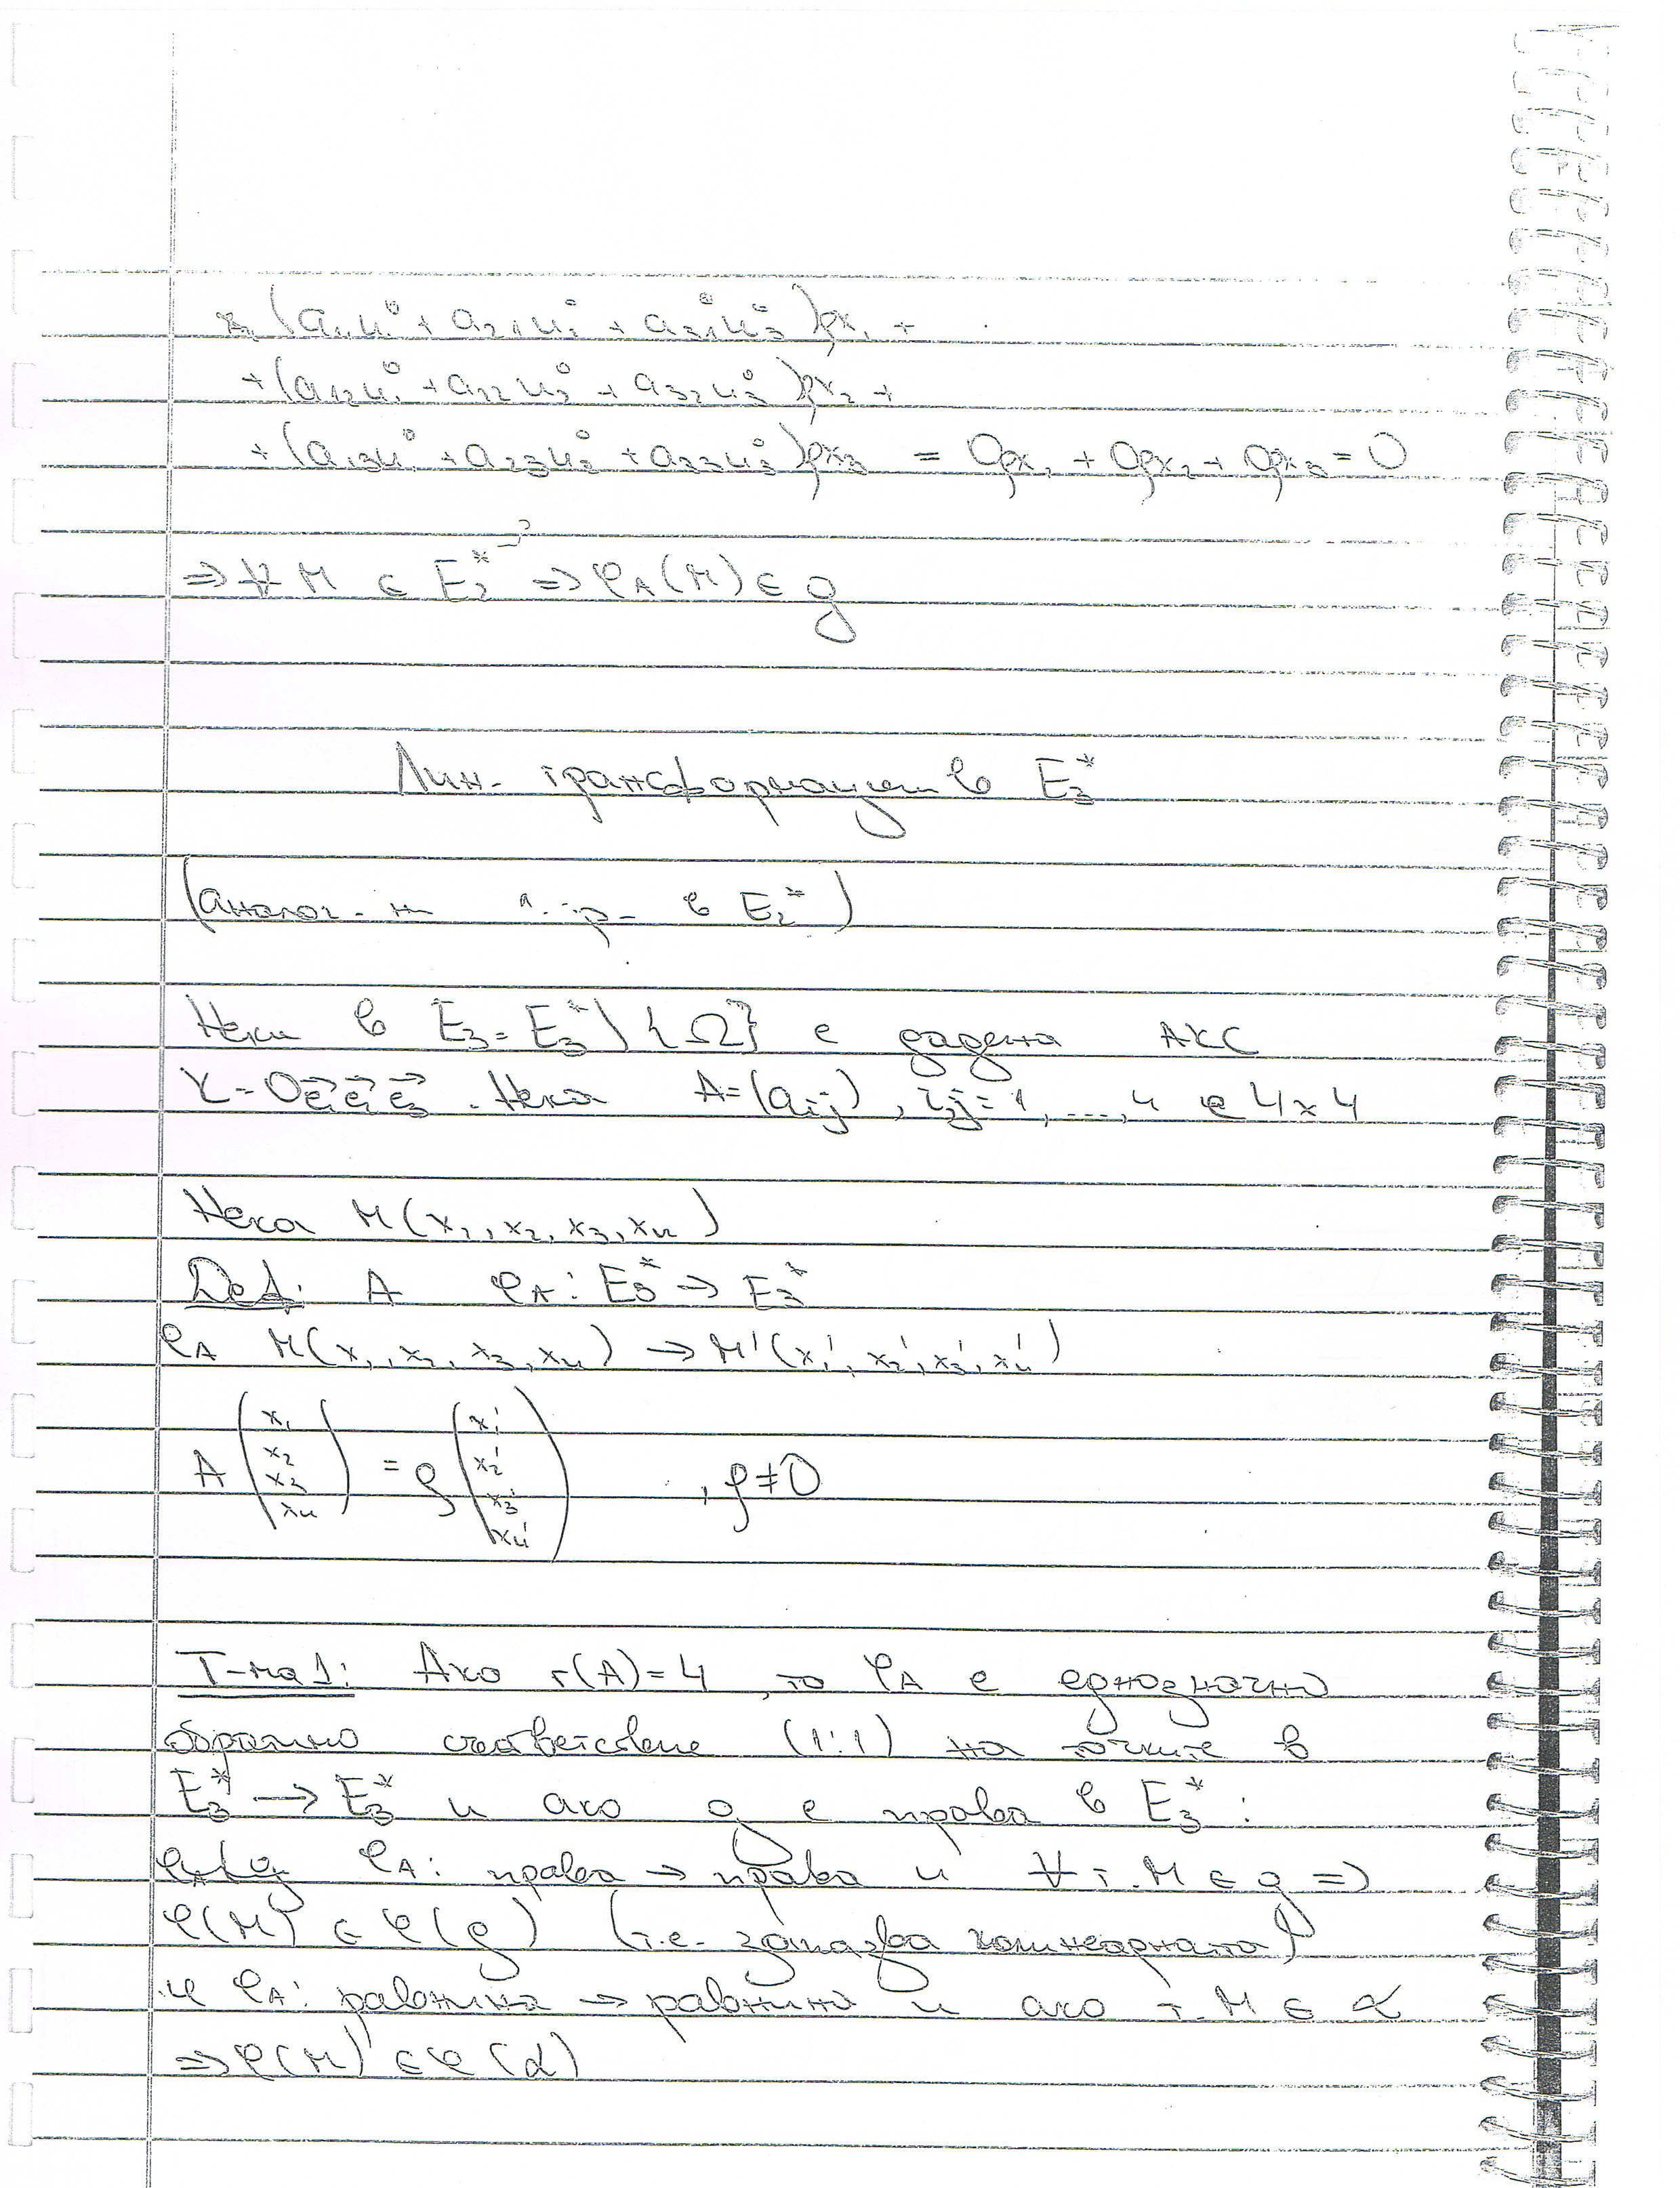 (a₁₁u₁° + a₂₁u₂° + a₃₁u₃°)ρx₁ +
+ (a₁₂u₁° + a₂₂u₂° + a₃₂u₃°)ρx₂ +
+ (a₁₃u₁° + a₂₃u₂° + a₃₃u₃°)ρx₃ = 0ρx₁ + 0ρx₂ + 0ρx₃ = 0
⇒ ∀ M ∈ E₂* ⇒ φ_A(M) ∈ g
Лин. трансформации в E₃*
(аналог. на в E₂*)
Нека в E₃ = E₃* \ {Ω} е дадена АКС
K = Oe₁e₂e₃. Нека A = (aᵢⱼ), i,j = 1, ..., 4 е 4x4
Нека M(x₁, x₂, x₃, x₄)
Деф: A φ_A: E₃* → E₃*
φ_A M(x₁, x₂, x₃, x₄) → M'(x₁', x₂', x₃', x₄')
A (x₁ x₂ x₃ x₄) = ρ (x₁' x₂' x₃' x₄') , ρ ≠ 0
Т-ма 1: Ако r(A) = 4, то φ_A е еднозначно
обратимо съответствие (1:1) на точките в
E₃* → E₃* и ако g е права в E₃*:
φ_A: права → права и ∀ т. M ∈ g ⇒
φ(M) ∈ φ(g) (т.е. запазва)
и φ_A: равнина → равнина и ако т. M ∈ α
⇒ φ(M) ∈ φ(α)